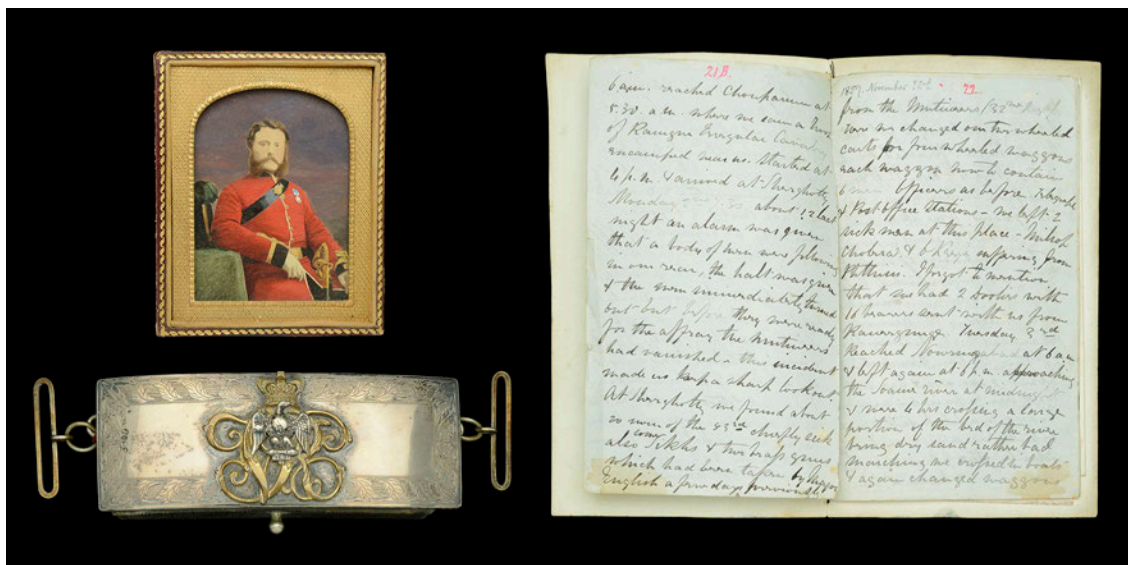 21B.
6 a.m. reached Choupareen at
5.30. a.m. where we saw a Troop
of Ramgur Irregular Cavalry
encamped near us. Started at
4 p.m. & arrived at Sherghotty
Monday about 12 last
night an alarm was given
that a body of men were following
in our rear, the halt was given
& the men immediately turned
out but before they were ready
for the affray the Mutineers
had vanished - this incident
made us keep a sharp lookout
At Sherghotty we found about
20 men of the 53rd chiefly sick
also some Sikhs & two brass guns
which had been taken by Major
English a few days previously
1857. November 22.
from the Mutineers (32nd
here we changed our two wheeled
carts for four wheeled waggons
each waggon now to contain
6 men Officers as before. Telegraph
& Post office stations - we left 2
sick men at this place -
Cholera, & suffering from
Phthisis. I forgot to mention
that we had 2 Doolies with
16 bearers sent with us from
Raneegunge. Tuesday 3rd
Reached at 6 a.m
& left again at 6 p.m. approaching
the Soane river at midnight
& were 4 hrs crossing a large
portion of the bed of the river
being dry sand rather bad
marching we crossed in boats
& again changed waggons